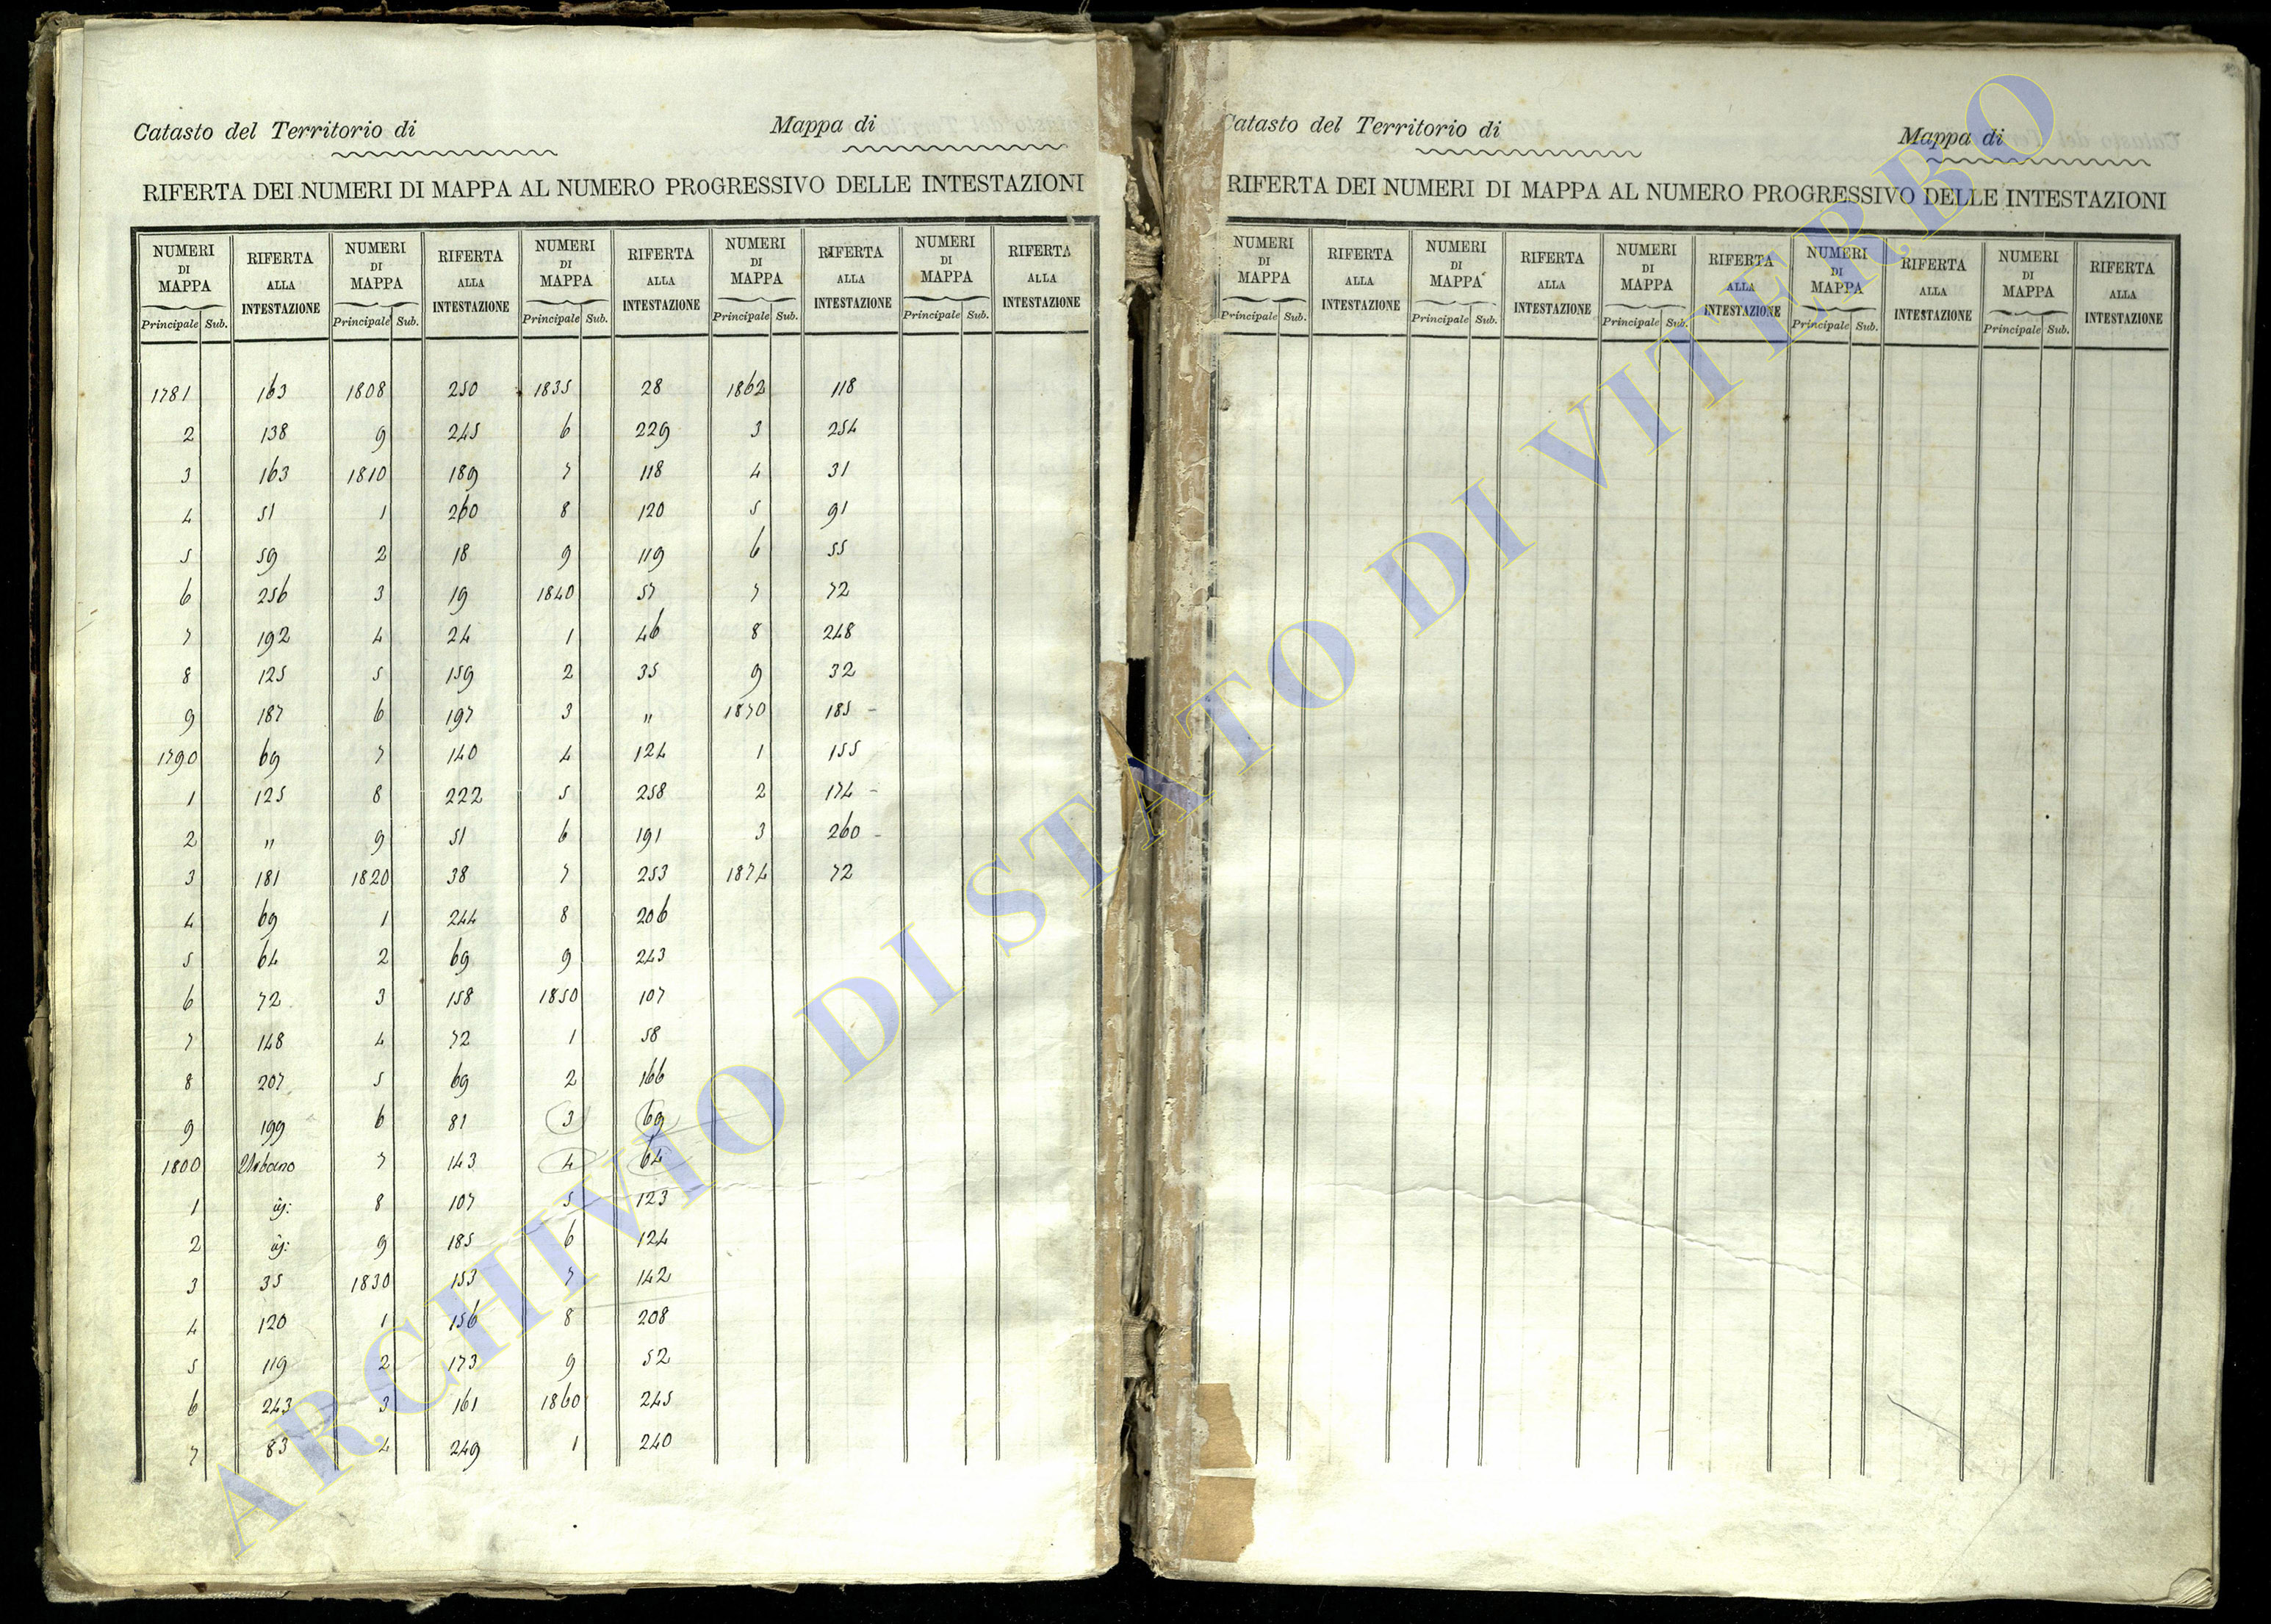 Catasto del Territorio di
Mappa di
RIFERTA DEI NUMERI DI MAPPA AL NUMERO PROGRESSIVO DELLE INTESTAZIONI
NUMERI DI MAPPA RIFERTA ALLA INTESTAZIONE NUMERI DI MAPPA RIFERTA ALLA INTESTAZIONE NUMERI DI MAPPA RIFERTA ALLA INTESTAZIONE NUMERI DI MAPPA RIFERTA ALLA INTESTAZIONE NUMERI DI MAPPA RIFERTA ALLA INTESTAZIONE
Principale Sub. Principale Sub. Principale Sub. Principale Sub. Principale Sub.
1781 163 1808 250 1835 28 1862 118
2 138 9 245 6 229 3 254
3 163 1810 189 7 118 4 31
4 51 1 260 8 120 5 91
5 59 2 18 9 119 6 55
6 256 3 19 1840 57 7 72
7 192 4 24 1 46 8 248
8 125 5 159 2 35 9 32
9 187 6 197 3 " 1870 185 -
1790 69 7 140 4 124 1 155
1 125 8 222 5 258 2 174 -
2 " 9 51 6 191 3 260 -
3 181 1820 38 7 253 1874 72
4 69 1 244 8 206
5 64 2 69 9 243
6 72 3 158 1850 107
7 148 4 72 1 58
8 207 5 69 2 166
9 199 6 81 3 69
1800 Urbano 7 143 4 64
1 8 107 5 123
2 9 185 6 124
3 35 1830 153 7 142
4 120 1 156 8 208
5 119 2 173 9 52
6 243 3 161 1860 245
7 83 4 249 1 240
Catasto del Territorio di
Mappa di
RIFERTA DEI NUMERI DI MAPPA AL NUMERO PROGRESSIVO DELLE INTESTAZIONI
NUMERI DI MAPPA RIFERTA ALLA INTESTAZIONE NUMERI DI MAPPA RIFERTA ALLA INTESTAZIONE NUMERI DI MAPPA RIFERTA ALLA INTESTAZIONE NUMERI DI MAPPA RIFERTA ALLA INTESTAZIONE NUMERI DI MAPPA RIFERTA ALLA INTESTAZIONE
Principale Sub. Principale Sub. Principale Sub. Principale Sub. Principale Sub.
ARCHIVIO DI STATO DI VITERBO